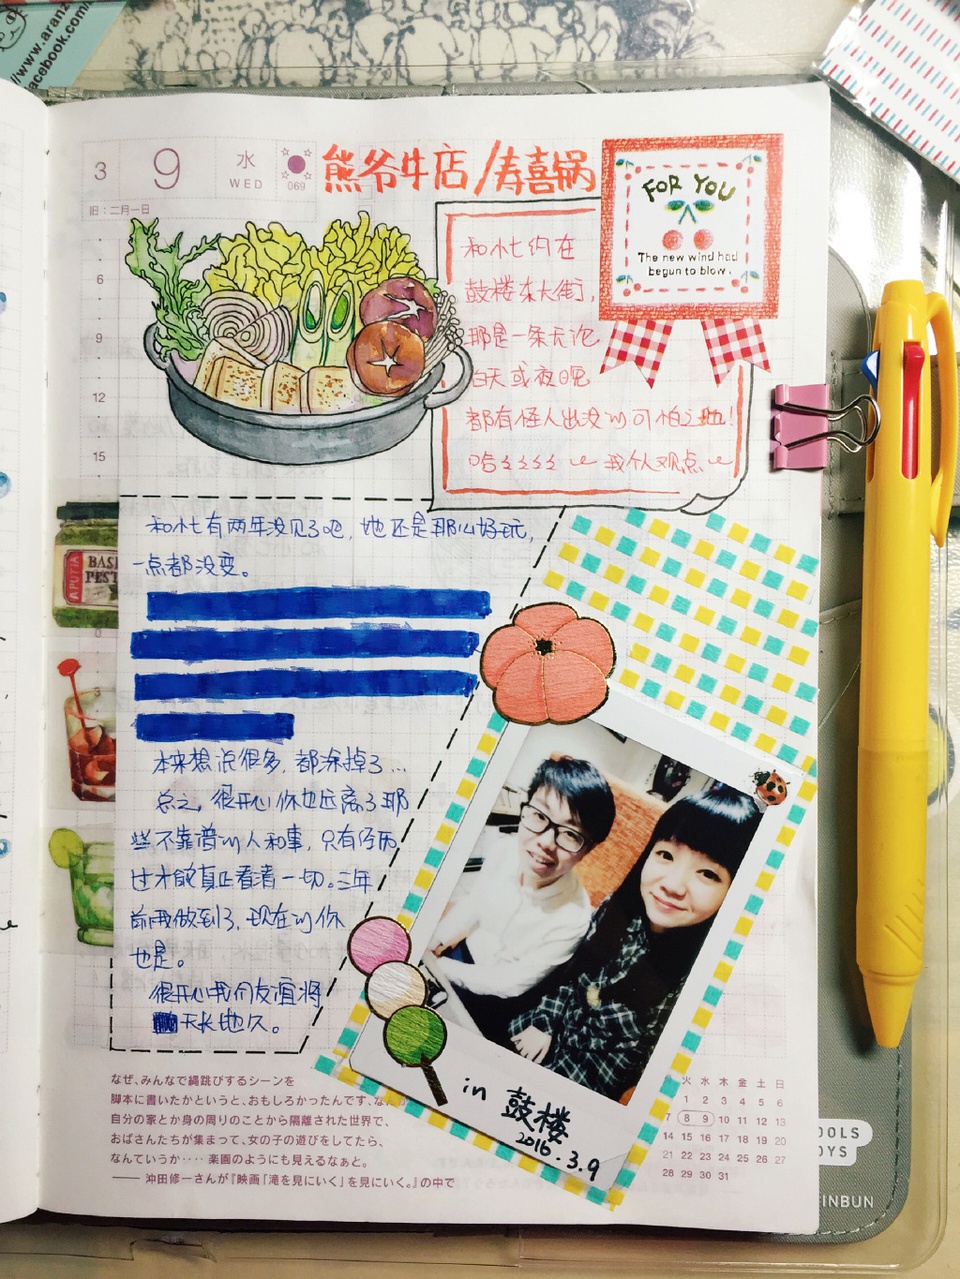 www.aranz
facebook.com/
3
9
水
WED
069
旧:二月一日
熊爷牛店/寿喜锅
FOR YOU
The new wind had
begun to blow.
和小七约在
鼓楼东大街,
那是一条无论
白天或夜晚
都有怪人出没的可怕之地!
哈ミミミミ 我个人观点
6
9
12
15
和小七有两年没见了吧,她还是那么好玩,
一点都没变。
本来想说很多,都涂掉了...
总之,很开心你也远离了那
些不靠谱的人和事,只有经历
过才能真正看清一切。三年
前我做到了,现在的你
也是。
很开心我们友谊将
天长地久。
APUTIA
BAS
PEST
in 鼓楼
2016.3.9
なぜ、みんなで縄跳びするシーンを
脚本に書いたかというと、おもしろかったんです、なん
自分の家とか身の周りのことから隔離された世界で、
おばさんたちが集まって、女の子の遊びをしてたら、
なんていうか‥‥楽園のようにも見えるなぁと。
―― 沖田修一さんが『映画「滝を見にいく」を見にいく。』の中で
火 水 木 金 土 日
1 2 3 4 5 6
7 8 9 10 11 12 13
14 15 16 17 18 19 20
21 22 23 24 25 26 27
28 29 30 31
OOLS
OYS
FINBUN